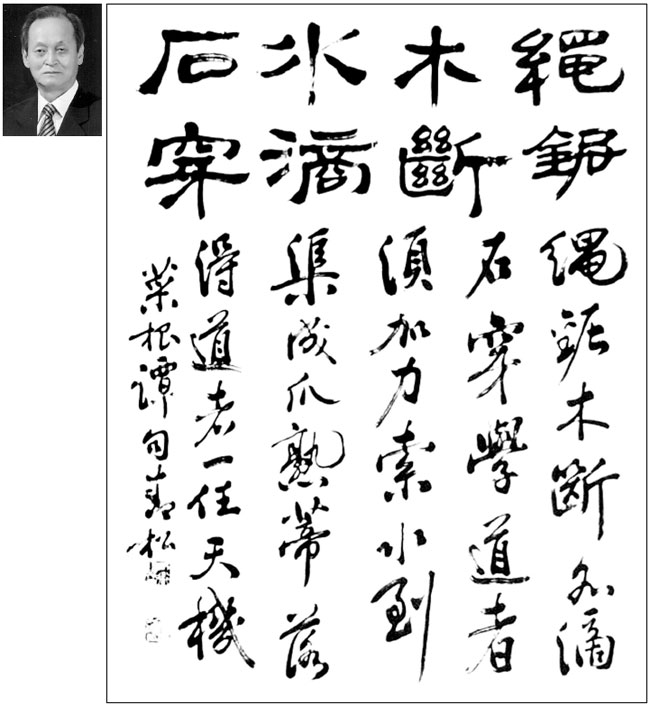 繩鋸
木斷
水滴
石穿
繩鋸木斷水滴
石穿學道者
須加力索水到
渠成瓜熟蒂落
得道者一任天機
菜根譚句